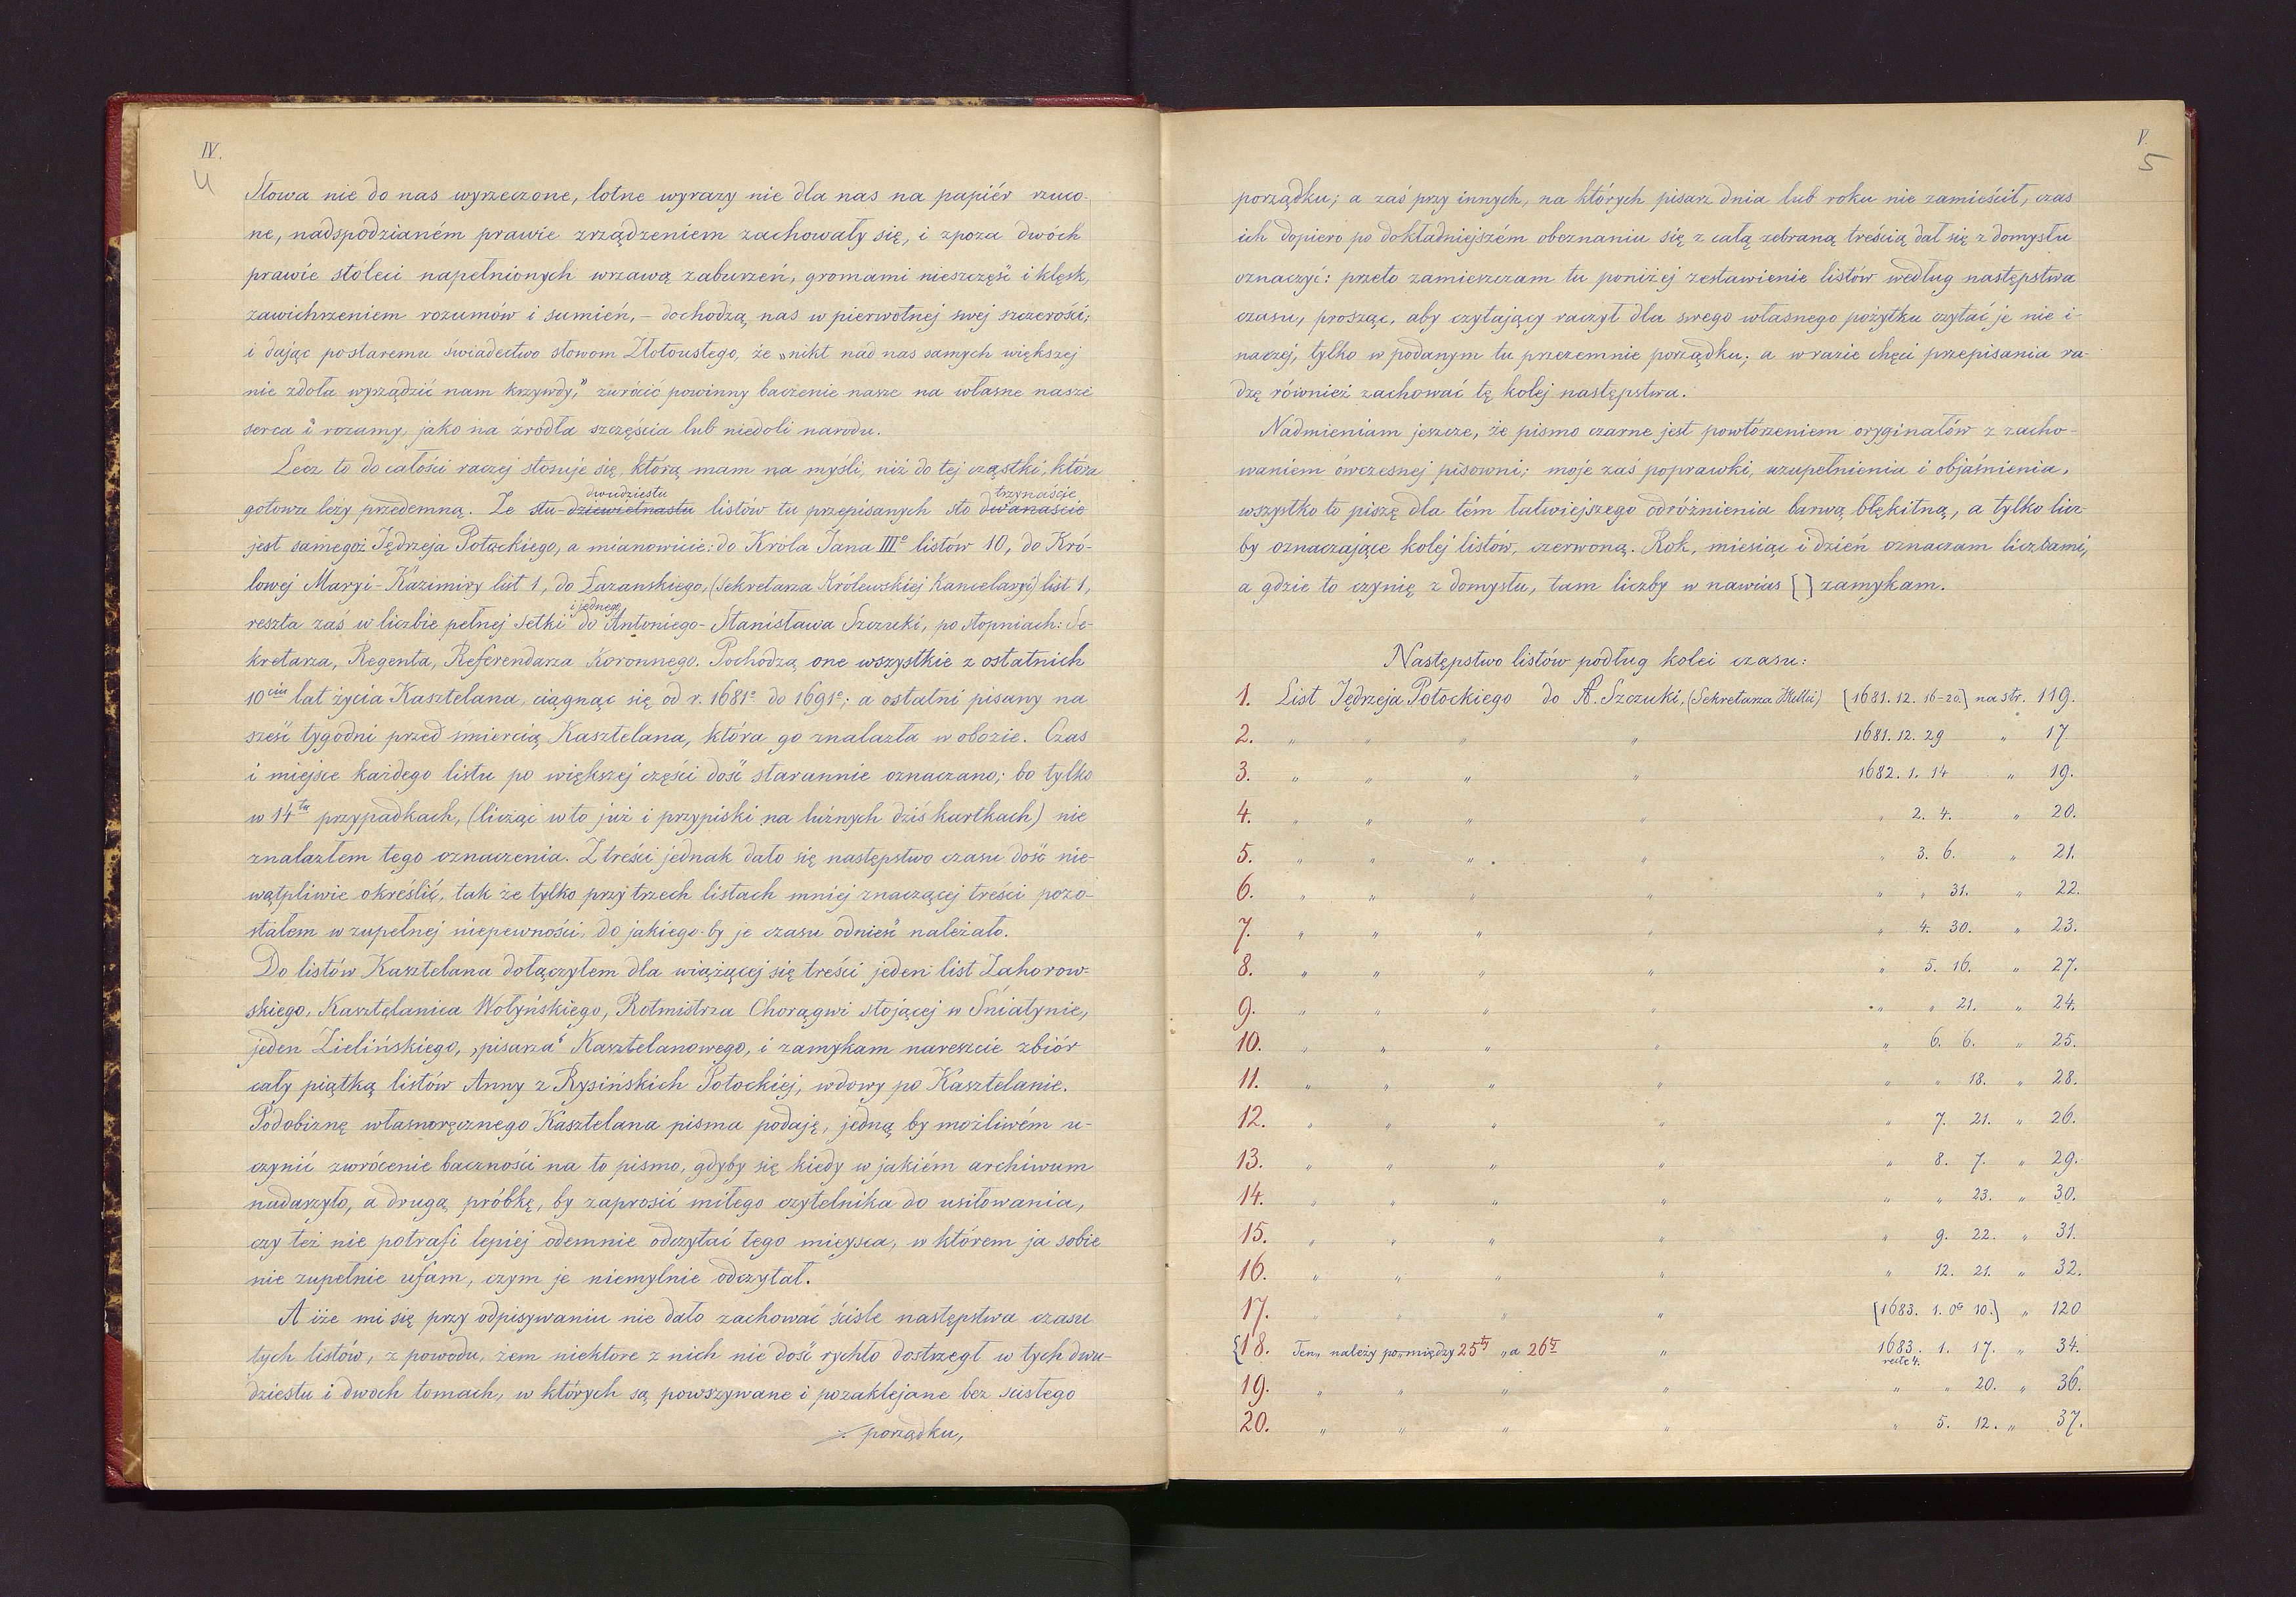 IV.
4
Słowa nie do nas wyrzeczone, lotne wyrazy nie dla nas na papiér rzuco-
ne, nadspodzianém prawie zrządzeniem zachowały się, i zpoza dwóch
prawie stóleci napełnionych wrzawą zaburzeń, gromami nieszczęść i klęsk,
zawichrzeniem rozumów i sumień, – dochodzą nas w pierwotnej swej szczerości;
i dając postaremu świadectwo słowom Złotoustego, że „nikt nad nas samych większej
nie zdoła wyrządzić nam krzywdy," zwrócić powinny baczenie nasze na własne nasze
serca i rozumy, jako na źródła szczęścia lub niedoli narodu.
Lecz to do całości raczej stosuje się, którą mam na myśli, niż do tej cząstki, która
dwudziestu trzynaście
gotowa leży przedemną. Ze stu dziewietnastu listów tu przepisanych sto dwanaście
jest samegoż Jędrzeja Potockiego, a mianowicie: do Króla Jana IIIº listów 10, do Kró-
lowej Maryi-Kazimiry list 1, do Łazanskiego, (Sekretarza Królewskiej Kancelaryi) list 1,
i jednego
reszta zaś w liczbie pełnej setki do Antoniego-Stanisława Szczuki, po stopniach: Se-
kretarza, Regenta, Referendarza Koronnego. Pochodzą one wszystkie z ostatnich
10ciu lat życia Kasztelana, ciągnąc się od r. 1681º do 1691º; a ostatni pisany na
sześć tygodni przed śmiercią Kasztelana, która go znalazła w obozie. Czas
i miejsce każdego listu po większej części dość starannie oznaczano; bo tylko
w 14tu przypadkach, (licząc w to już i przypiski na luźnych dziś kartkach) nie
znalazłem tego oznaczenia. Z treści jednak dało się następstwo czasu dość nie-
wątpliwie określić, tak że tylko przy trzech listach mniej znaczącej treści pozo-
stałem w zupełnej niepewności, do jakiego-by je czasu odnieść należało.
Do listów Kasztelana dołączyłem dla wiążącej się treści jeden list Zahorow-
skiego, Kasztelanica Wołyńskiego, Rotmistrza Chorągwi stojącej w Śniatynie,
jeden Zielińskiego, „pisarza" Kasztelanowego, i zamykam nareszcie zbiór
cały piątką listów Anny z Rysińskich Potockiej, wdowy po Kasztelanie.
Podobiznę własnoręcznego Kasztelana pisma podaję, jedną by możliwém u-
czynić zwrócenie baczności na to pismo, gdyby się kiedy w jakiém archiwum
nadarzyło, a drugą próbkę, by zaprosić miłego czytelnika do usiłowania,
czy też nie potrafi lepiej odemnie odczytać tego miejsca, w którem ja sobie
nie zupełnie ufam, czym je niemylnie odczytał.
A iże mi się przy odpisywaniu nie dało zachować ściśle następstwa czasu
tych listów, z powodu, żem niektóre z nich nie dość rychło dostrzegł w tych dwu-
dziestu i dwoch tomach, w których są powszywane i pozaklejane bez ścisłego
porządku,
V.
5
porządku; a zaś przy innych, na których pisarz dnia lub roku nie zamieścił, czas
ich dopiero po dokładniejszém obeznaniu się z całą zebraną treścią dał się z domysłu
oznaczyć: przeto zamieszczam tu poniżej zestawienie listów według następstwa
czasu, prosząc, aby czytający raczył dla swego własnego pożytku czytać je nie i-
naczej, tylko w podanym tu przezemnie porządku; a w razie chęci przepisania ra-
dzę również zachować tę kolej następstwa.
Nadmieniam jeszcze, że pismo czarne jest powtórzeniem oryginałów z zacho-
waniem ówczesnej pisowni; moje zaś poprawki, uzupełnienia i objaśnienia,
wszystko to piszę dla tém łatwiejszego odróżnienia barwą błękitną, a tylko licz-
by oznaczające kolej listów, czerwoną. Rok, miesiąc i dzień oznaczam liczbami,
a gdzie to czynię z domysłu, tam liczby w nawias [ ] zamykam.
Następstwo listów podług kolei czasu:
1. List Jędrzeja Potockiego do A. Szczuki, (Sekretarza JKMci) [1681. 12. 16-20.] na str. 119.
2. „ „ „ „ 1681. 12. 29 „ 17
3. „ „ „ „ 1682. 1. 14 „ 19.
4. „ „ „ „ „ 2. 4. „ 20.
5. „ „ „ „ „ 3. 6. „ 21.
6. „ „ „ „ „ „ 31. „ 22.
7. „ „ „ „ „ 4. 30. „ 23.
8. „ „ „ „ „ 5. 16. „ 27.
9. „ „ „ „ „ „ 21. „ 24.
10. „ „ „ „ „ 6. 6. „ 25.
11. „ „ „ „ „ „ 18. „ 28.
12. „ „ „ „ „ 7. 21. „ 26.
13. „ „ „ „ „ 8. 7. „ 29.
14. „ „ „ „ „ „ 23. „ 30.
15. „ „ „ „ „ 9. 22. „ 31.
16. „ „ „ „ „ 12. 21. „ 32.
17. „ „ „ „ [1683. 1. 10.] „ 120
{18. Ten „ należy pomiędzy 25ty „ a 26ty „ 1683. 1. 17. „ 34.
recte 4.
19. „ „ „ „ „ „ 20. „ 36.
20. „ „ „ „ „ 5. 12. „ 37.